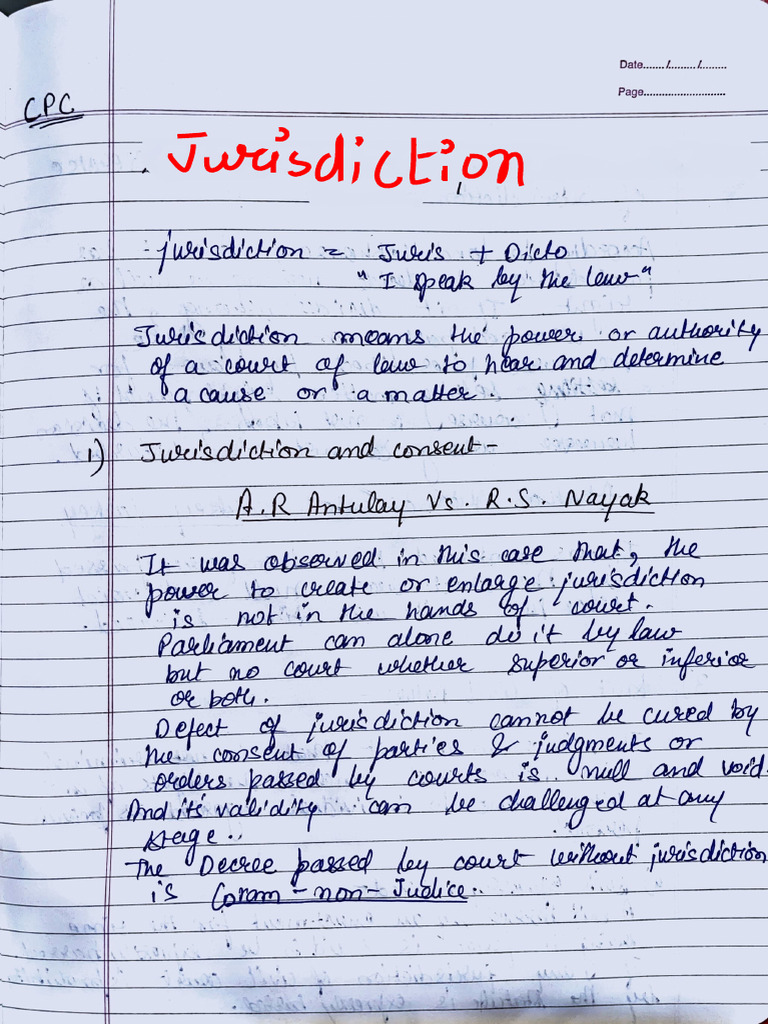 Date......./........./........
Page...........................
CPC
Jurisdiction
jurisdiction = Juris + Dicto
"I speak by the law"
Jurisdiction means the power or authority
of a court of law to hear and determine
a cause or a matter
1) Jurisdiction and consent -
A.R Antulay Vs. R.S. Nayak
It was observed in this case that, the
power to create or enlarge jurisdiction
is not in the hands of court.
Parliament can alone do it by law
but no court whether superior or inferior
or both.
Defect of jurisdiction cannot be cured by
the consent of parties & judgments or
orders passed by courts is null and void.
And its validity can be challenged at any
stage..
The Decree passed by court without jurisdiction
is Coram-non-Judice..